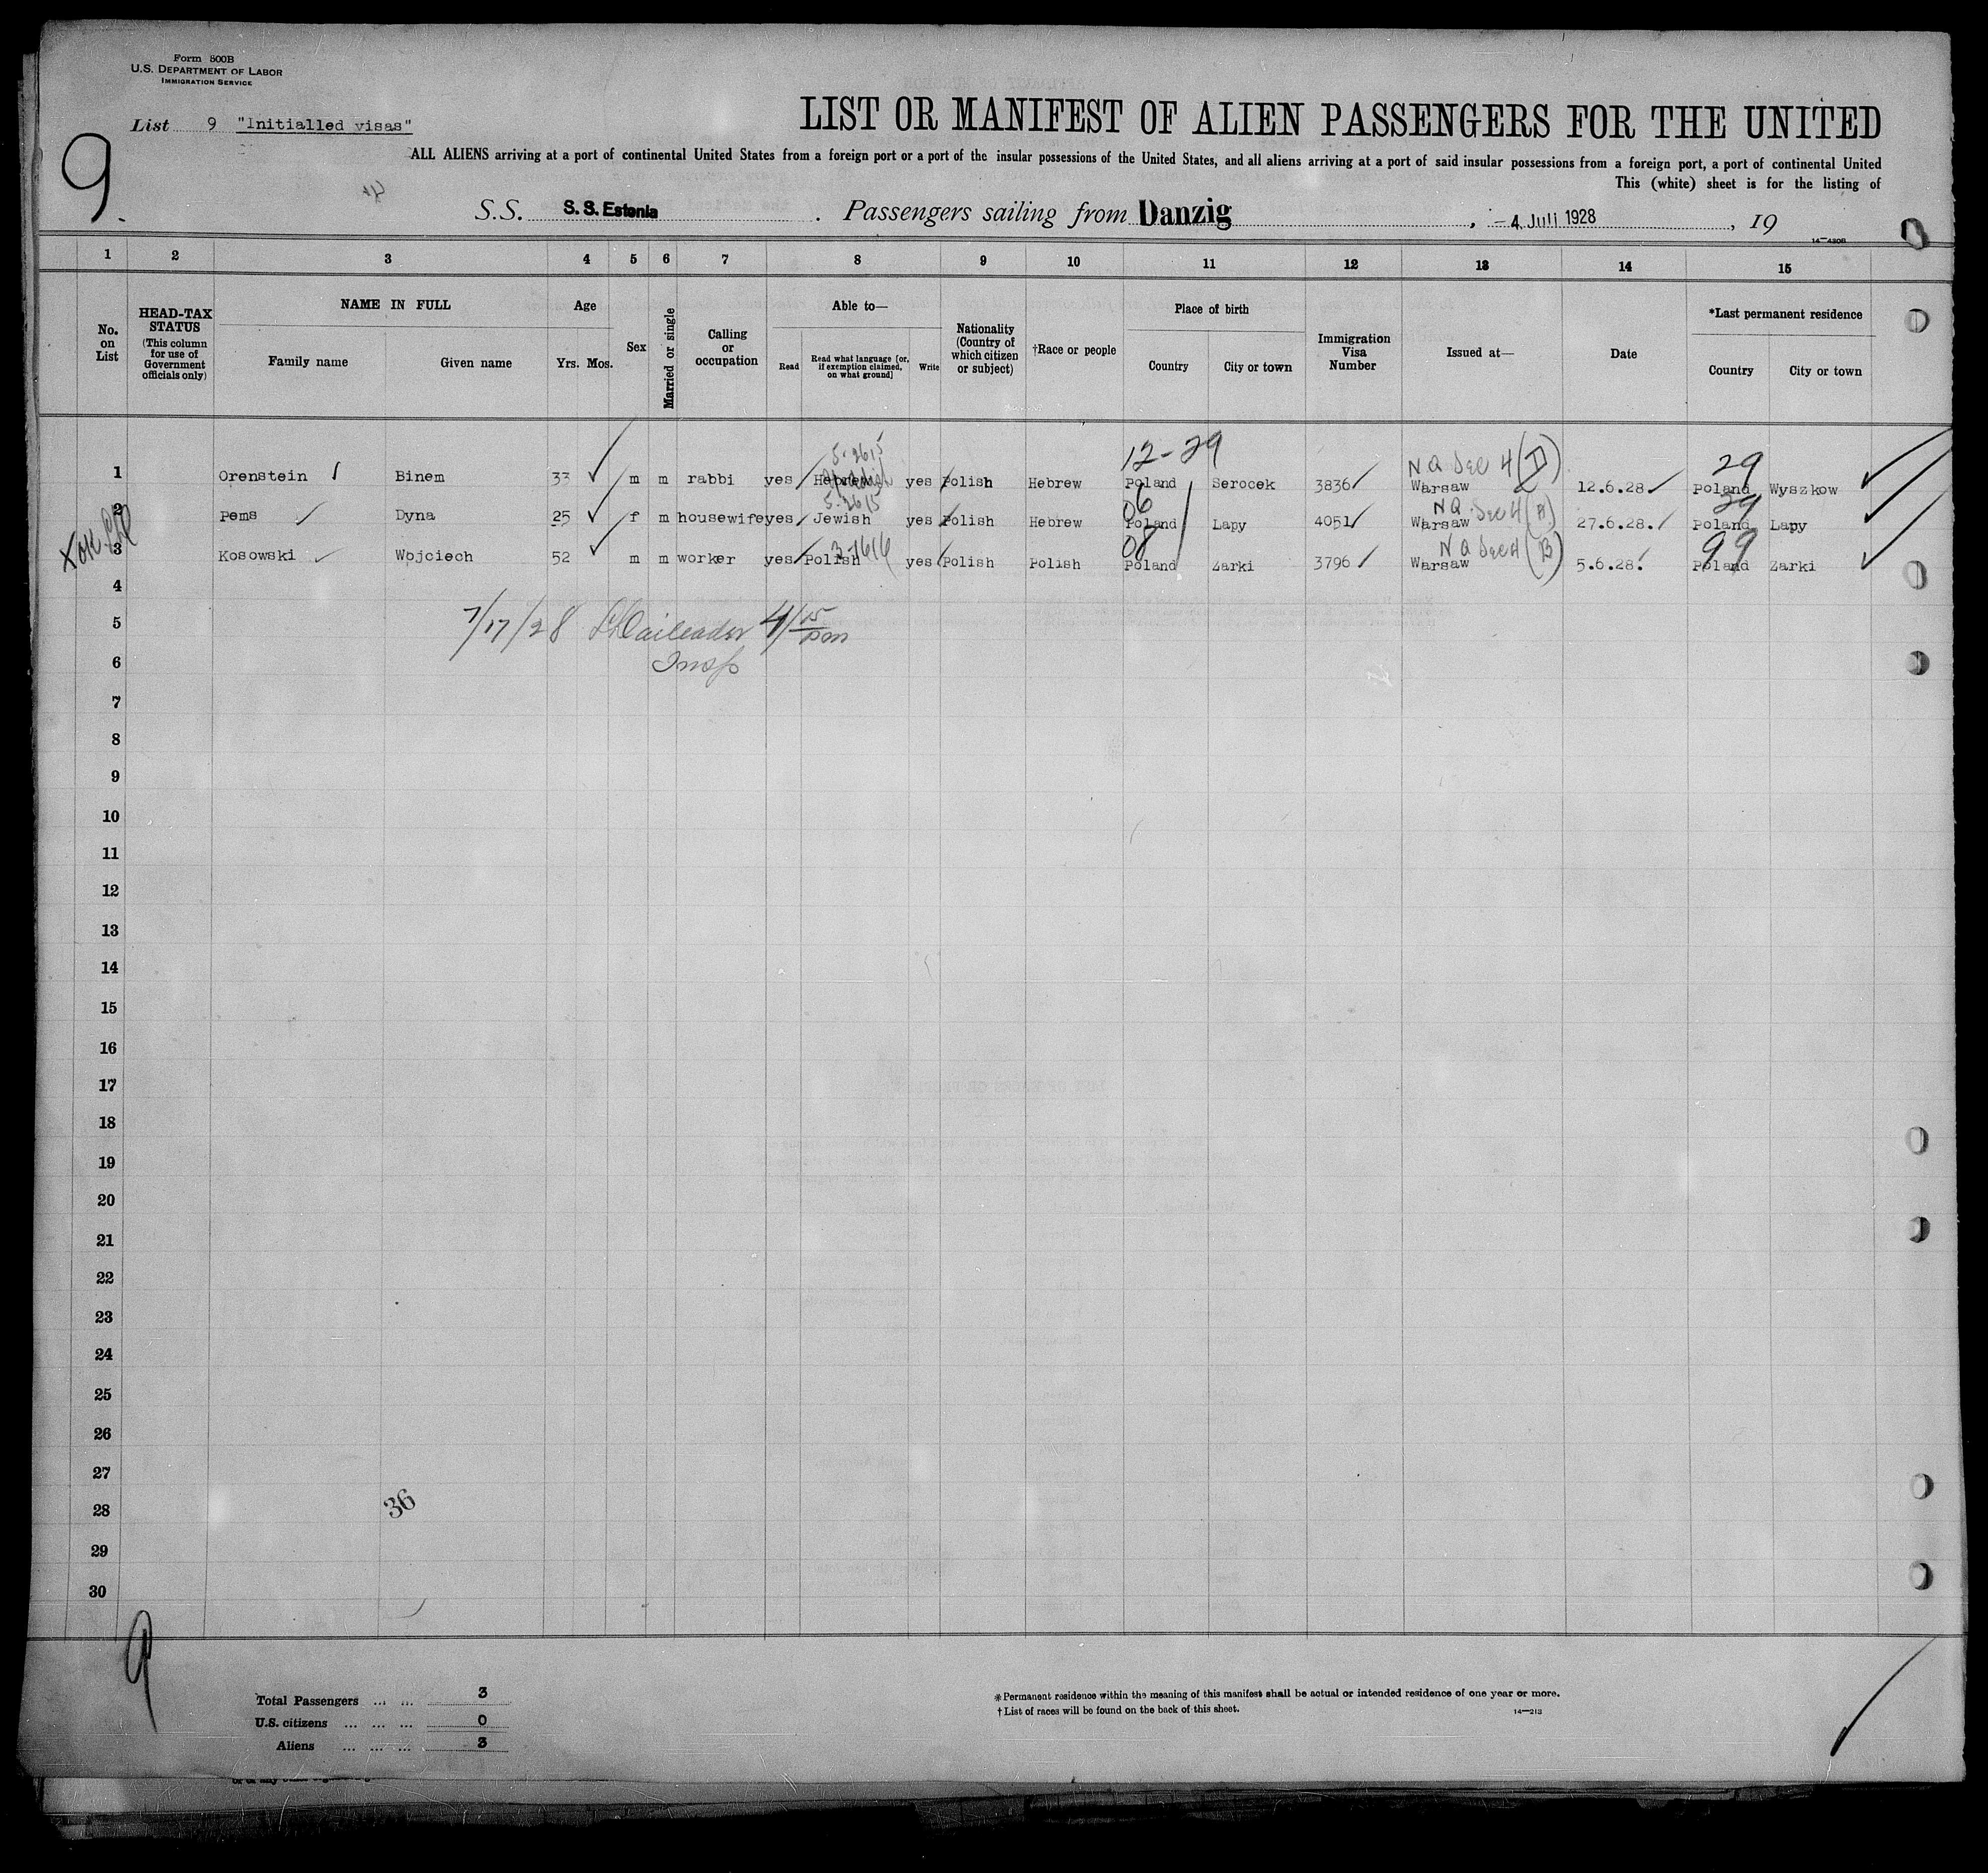 Form 500B
U.S. DEPARTMENT OF LABOR
IMMIGRATION SERVICE
List 9 "Initialled visas"
9.
LIST OR MANIFEST OF ALIEN PASSENGERS FOR THE UNITED
ALL ALIENS arriving at a port of continental United States from a foreign port or a port of the insular possessions of the United States, and all aliens arriving at a port of said insular possessions from a foreign port, a port of continental United
This (white) sheet is for the listing of
S.S. S. S. Estonia. Passengers sailing from Danzig, -4 Juli 1928, 19
14-430B
1 2 3 4 5 6 7 8 9 10 11 12 13 14 15
No. on List
HEAD-TAX STATUS (This column for use of Government officials only)
NAME IN FULL
Family name Given name
Age
Yrs. Mos.
Sex
Married or single
Calling or occupation
Able to—
Read Read what language [or, if exemption claimed, on what ground] Write
Nationality (Country of which citizen or subject)
†Race or people
Place of birth
Country City or town
Immigration Visa Number
Issued at—
Date
*Last permanent residence
Country City or town
5-2615 12-29 NQ Sec 4 (D) 29
1 Orenstein Binem 33 m m rabbi yes Hebrew yes Polish Hebrew Poland Serocek 3836 Warsaw 12.6.28. Poland Wyszkow
5-2615 06 NQ Sec 4 (B) 29
2 Pems Dyna 25 f m housewife yes Jewish yes Polish Hebrew Poland Lapy 4051 Warsaw 27.6.28. Poland Lapy
3-1616 08 NQ Sec 4 (B) 99
3 Kosowski Wojciech 52 m m worker yes Polish yes Polish Polish Poland Zarki 3796 Warsaw 5.6.28. Poland Zarki
4
5 7/17/28 4/15 pm
6 Insp
7
8
9
10
11
12
13
14
15
16
17
18
19
20
21
22
23
24
25
26
27
28 36
29
30
9
Total Passengers ... ... 3
U.S. citizens ... ... ... 0
Aliens ... ... ... 3
*Permanent residence within the meaning of this manifest shall be actual or intended residence of one year or more.
†List of races will be found on the back of this sheet.
14-213